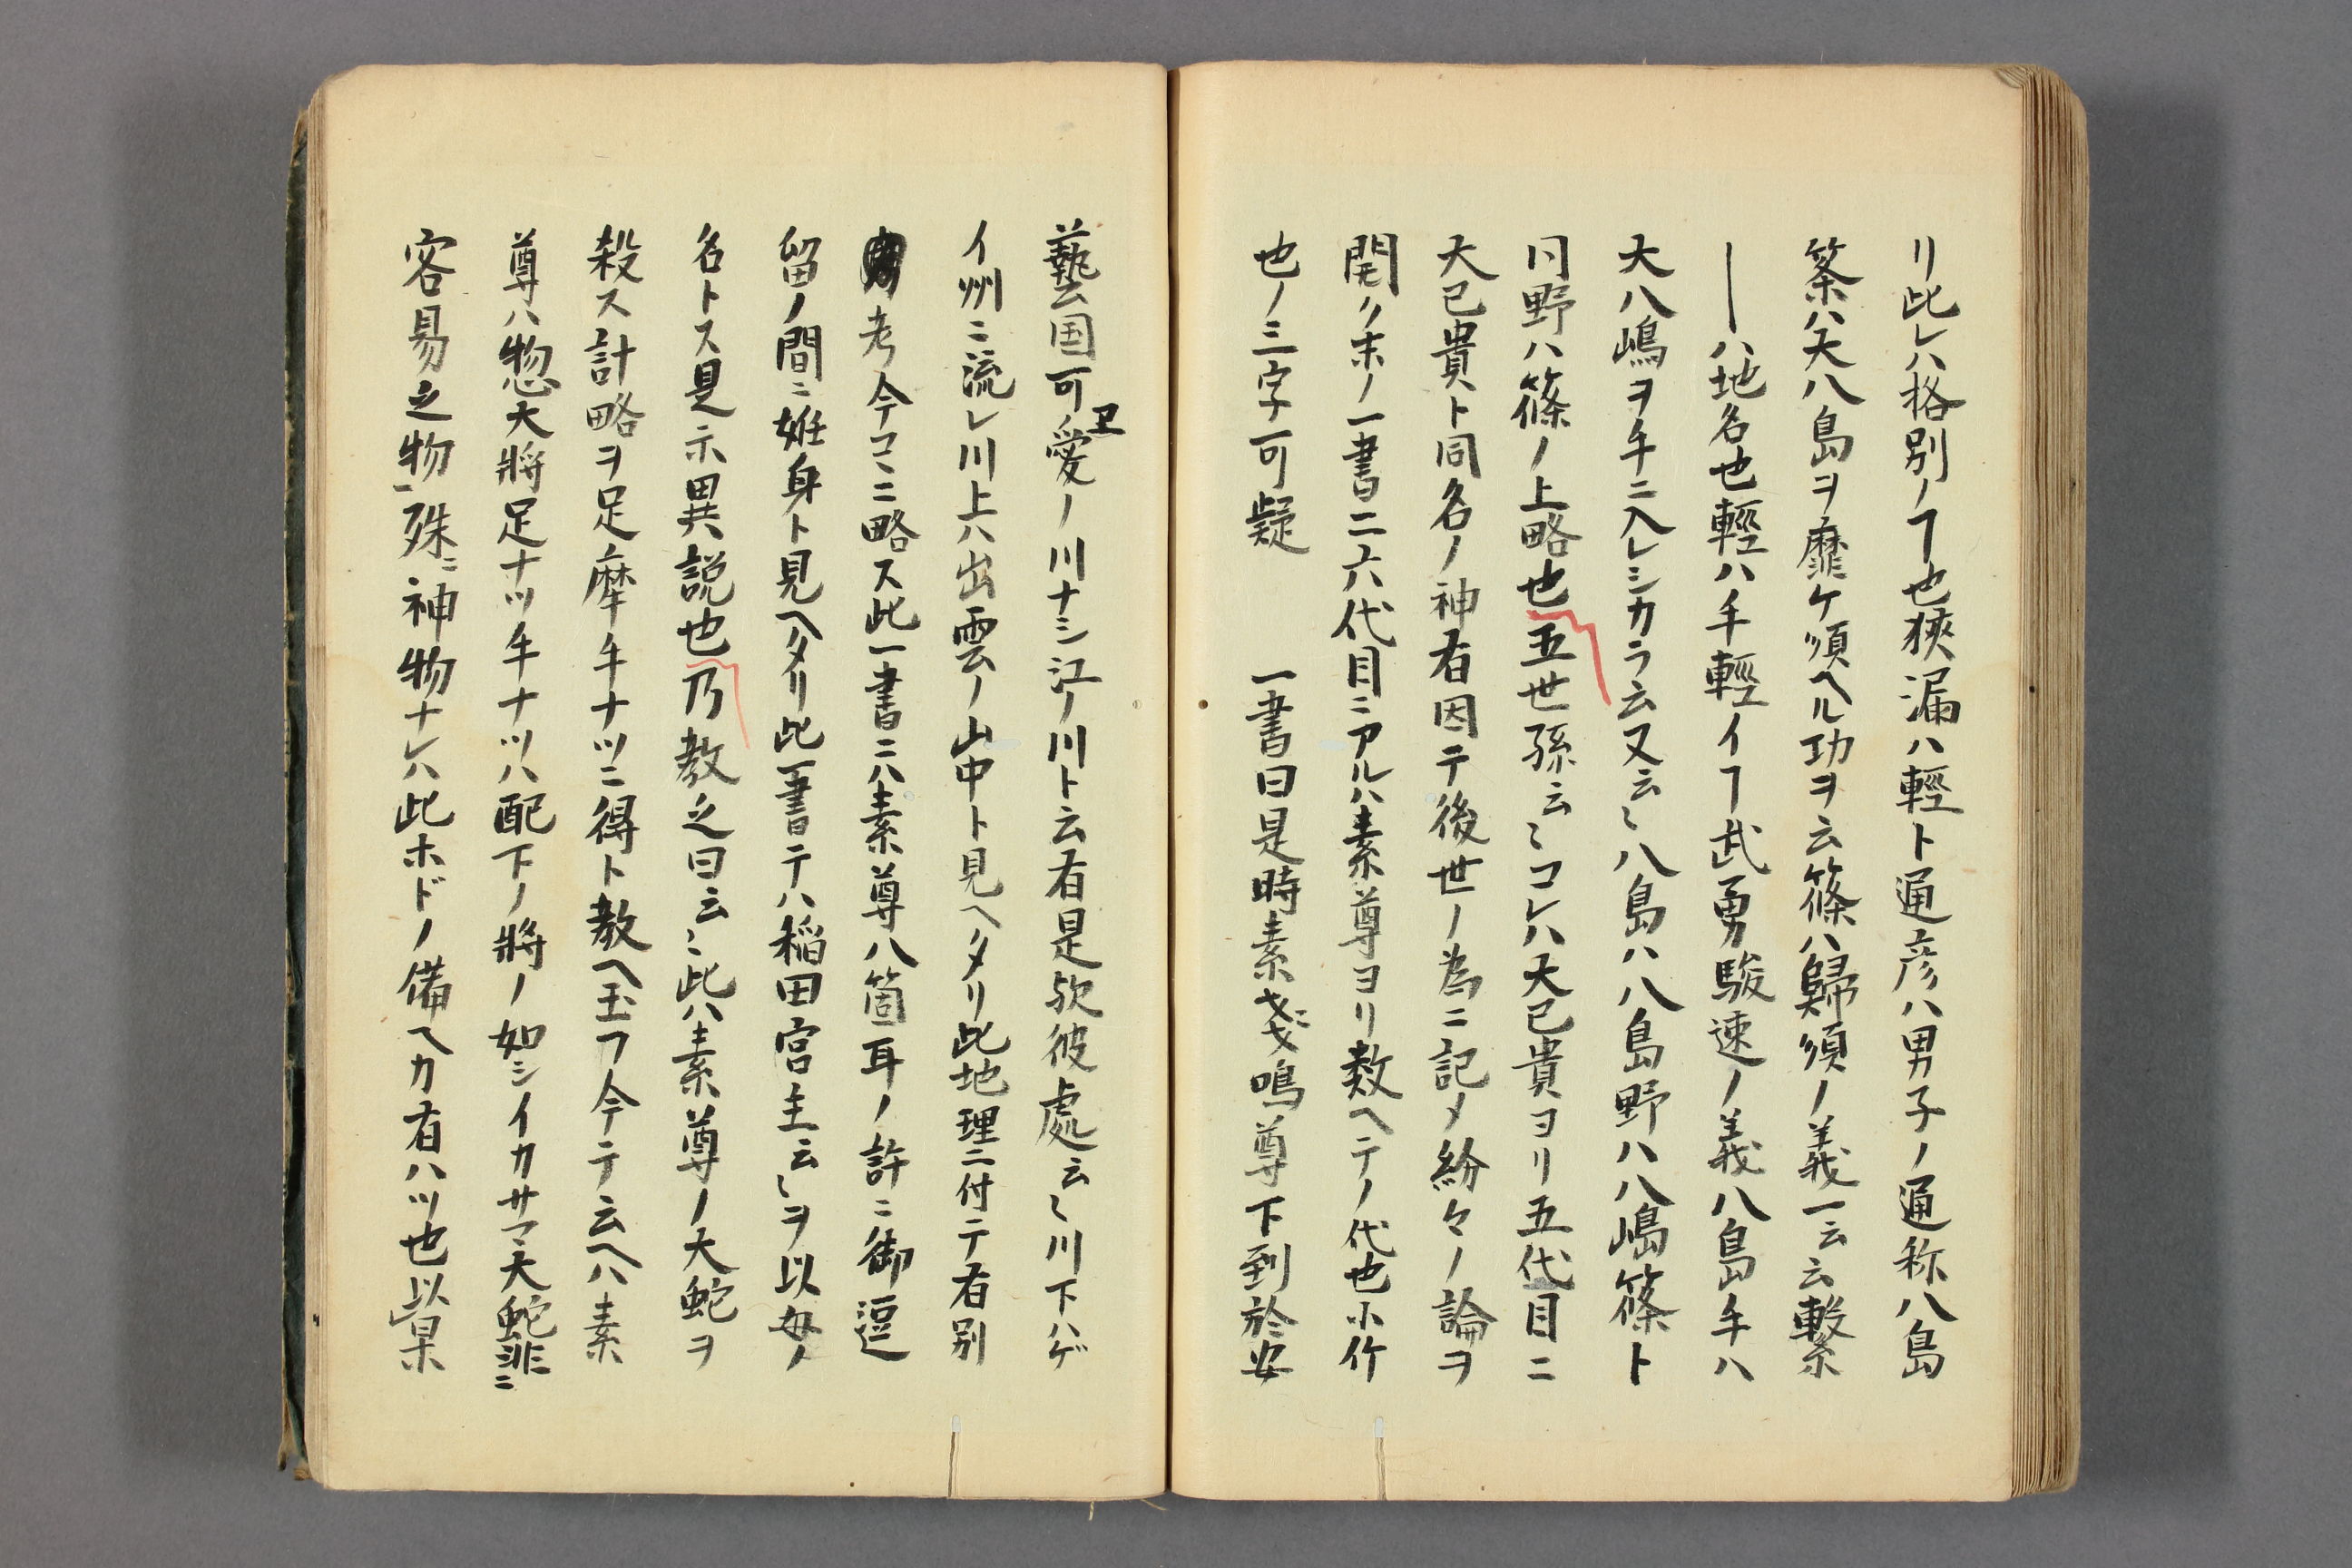 リ此レハ格別ノヿ也狹漏ハ輕ト通彦ハ男子ノ通称八島
篠ハ大八島ヲ靡ケ須ヘル功ヲ云篠ハ歸須ノ義一云云繋
｜ハ地名也輕ハ手輕イヿ武勇駿速ノ義八島手ハ
大八嶋ヲ手ニ入レシカラ云又云〻八島ハ八島野ハ八嶋篠ト
同野ハ篠ノ上略也五世孫云〻コレハ大已貴ヨリ五代目ニ
大已貴ト同名ノ神有因テ後世ノ為ニ記メ紛々ノ論ヲ
開ク末ノ一書ニ六代目ニアルハ素尊ヨリ数ヘテノ代也小竹
也ノ三字可疑　一書曰是時素戔嗚尊下到於安
藝国可愛ノ川ナシ江ノ川ト云有是欤彼處云〻川下ハゲ
エ
イ州ニ流レ川上ハ出雲ノ山中ト見ヘタリ此地理ニ付テ有別
考今コヽニ略ス此一書ニハ素尊八箇耳ノ許ニ御逗
留ノ間ニ姙身ト見ヘタリ此一書テハ稲田宮主云〻ヲ以女ノ
名トス是亦異説也乃教之曰云〻此ハ素尊ノ大蛇ヲ
殺ス計略ヲ足摩手ナツニ得ト教ヘ玉フ今テ云ヘハ素
尊ハ惣大將足ナツ手ナツハ配下ノ將ノ如シイカサマ大蛇非ニ
容易之物一殊ニ神物ナレハ此ホドノ備ヘカ有ハツ也以菓